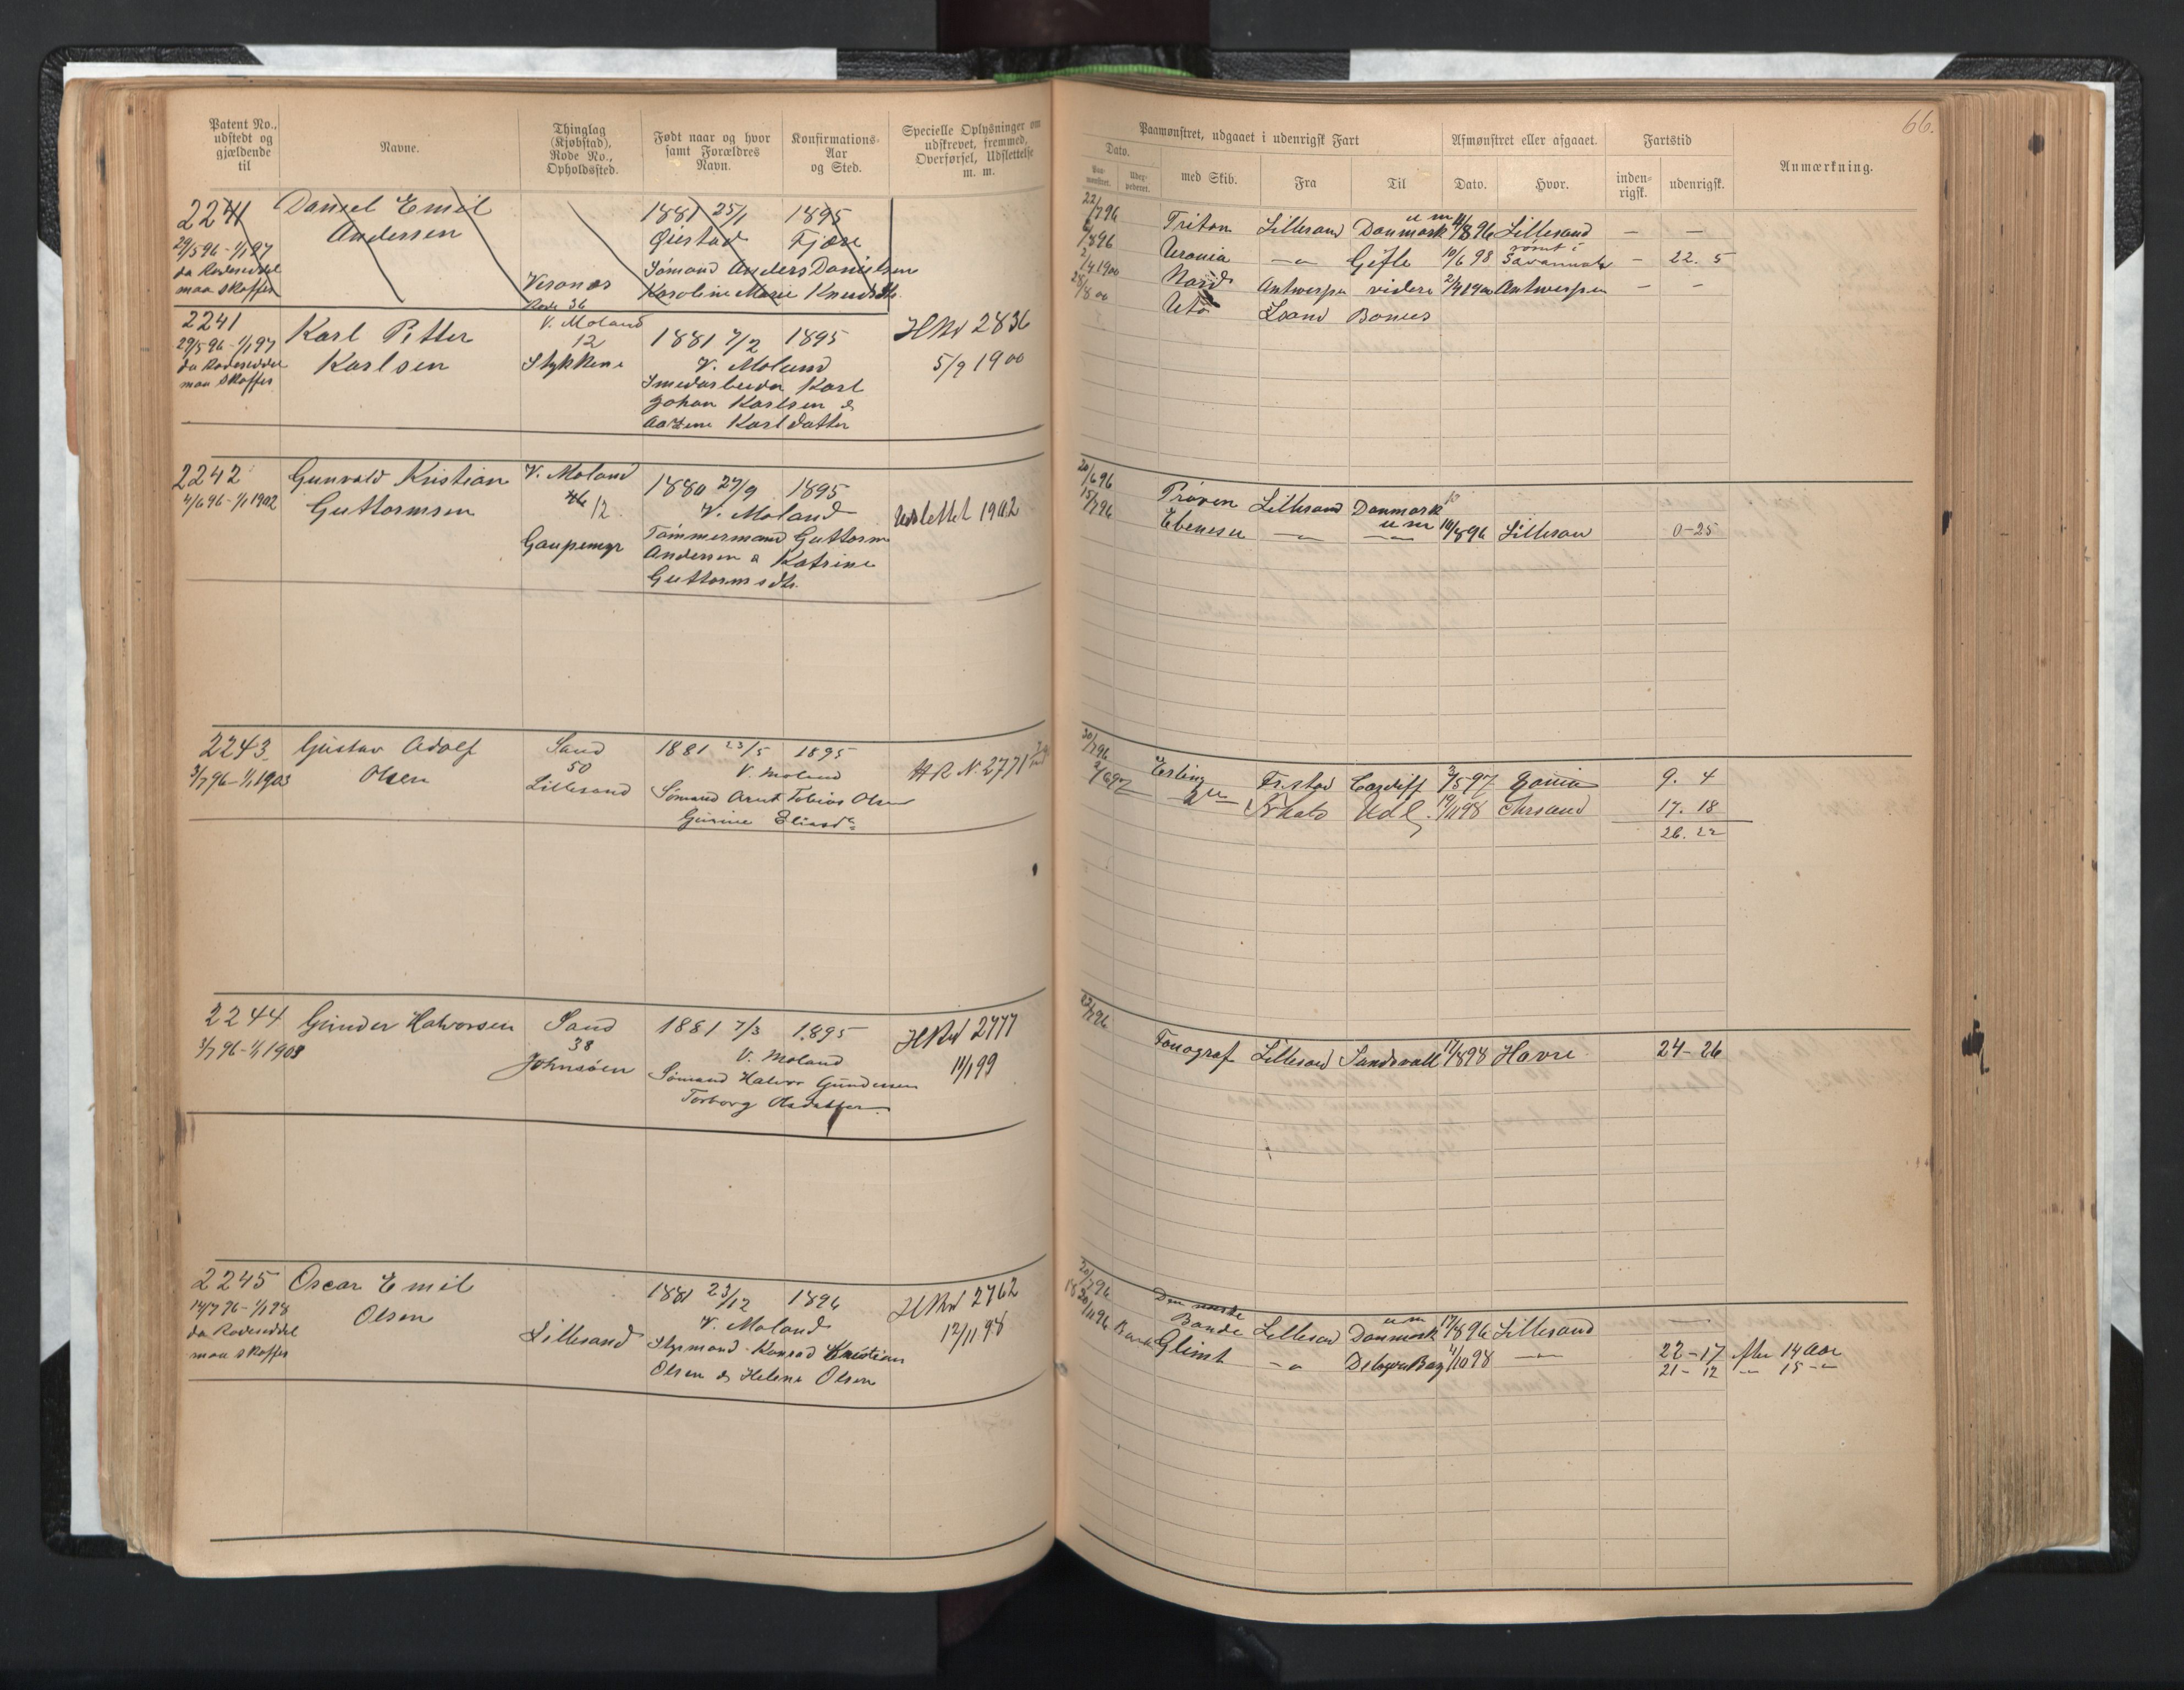 Patent No., udstedt og gjældende til
Navne.
Thinglag (Kjøbstad), Rode No., Opholdssted.
Født naar og hvor samt Forældres Navn.
Konfirmations-Aar og Sted.
Specielle Oplysninger om udskrevet, fremmed, Overførsel, Udslettelse m. m.
2241 Daniel Emil 1881 25/1 1895
Andersen Øiestad Fjære
29/5 96 - 1/1 97
da Rodeseddel Sømand Anders Danielsen
maa skaffes Karoline Marie Knudsdtr.
2241 Karl Petter V. Moland 1881 7/2 1895 HRul 2836
29/5 96 - 1/1 97 Karlsen 12 V. Moland 5/9 1900
da Rodeseddel Stykkene Smedarbeider Karl
maa skaffes Johan Karlsen &
Karldatter
2242 Gunvald Kristian V. Moland 1880 27/9 1895
4/6 96 - 1/1 1902 Guttormsen 12 V. Moland Udslettet 1902
Tømmermand Guttorm
Andersen & Katrine
Guttormsdtr.
2243 Gustav Adolf Sand 1881 23/5 1895
3/7 96 - 1/1 1903 Olsen 50 V. Moland HR N. 2771
Lillesand Sømand Arnt Tobias Olsen
Gurine Eliasdr
2244 Gunder Halvorsen Sand 1881 7/3 1895 HRul 2777
3/7 96 - 1/1 1903 38 V. Moland 11/1 99
Johnsøen Sømand Halvor Gundersen
Torborg Olsdatter
2245 Oscar Emil 1881 23/12 1896 HRul 2762
14/7 96 - 1/1 98 Olsen V. Moland 12/11 98
da Rodeseddel Lillesand Styrmand Konrad Kristian
maa skaffes Olsen & Helene Olsen
66.
Paamønstret, udgaaet i udenrigsk Fart
Afmønstret eller afgaaet.
Fartstid
Anmærkning.
Dato.
Paamønstret.
med Skib.
Fra
Til
Dato.
Hvor.
indenrigsk.
udenrigsk.
22/7 96 Triton Lillesand Danmark u m 11/8 96 Lillesand — —
Urania —"— Gefle 10/6 98 rømt i Savannah — 22. 5
Nord Antwerpen videre Antwerpen — —
28/8 00 Lsand
20/6 96 Prøven Lillesand Danmark
15/7 96 Ebeneser —"— u m 14/8 96 Lillesand 0-25
30/7 96 Erling Fr.stad Cardiff 3/5 97 9. 4
2/6 97 Udl. 19/11 98 Chrsand 17. 18
26. 22
22/7 96 Fonograf Lillesand Sundsvall 17/8 98 Havre 24-26
20/7 96 Den norske Bonde Lillesand Danmark u m 17/8 96 Lillesand —
Bark Glimt —"— 4/10 98 —"— 22-17 efter 14 Aar
21-12 —"— 15 —"—